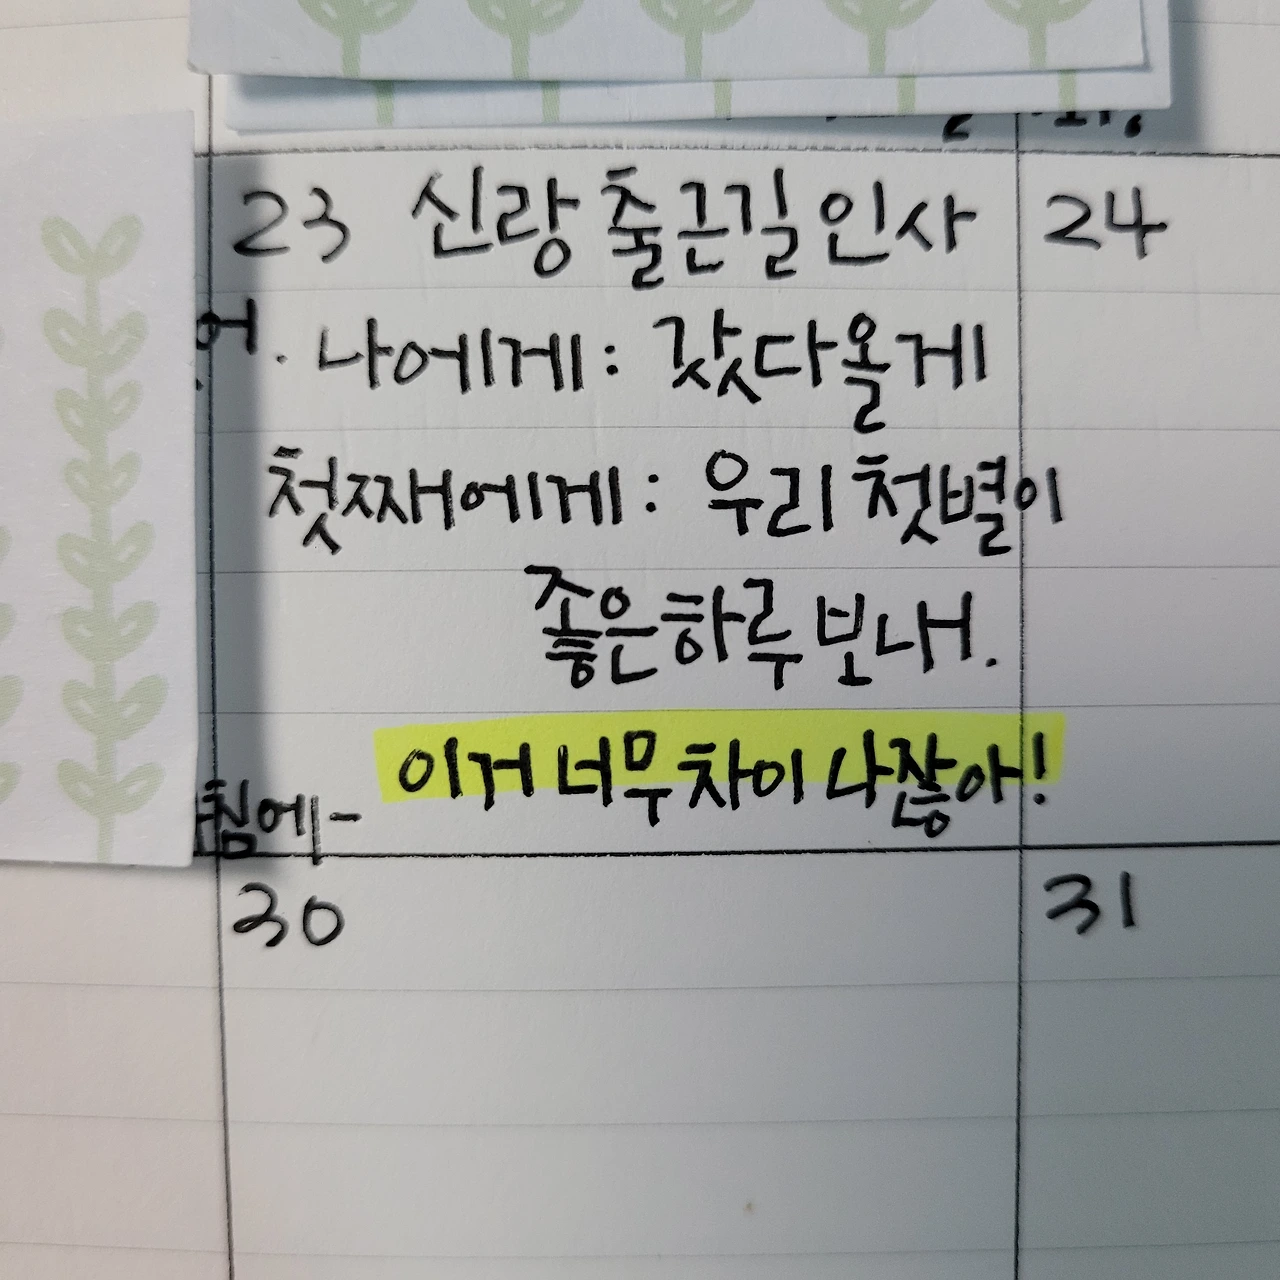 23 신랑 출근길 인사 24
어. 나에게: 갔다올게
첫째에게: 우리 첫별이
좋은하루 보내.
이거 너무 차이 나잖아!
침에-
30 31